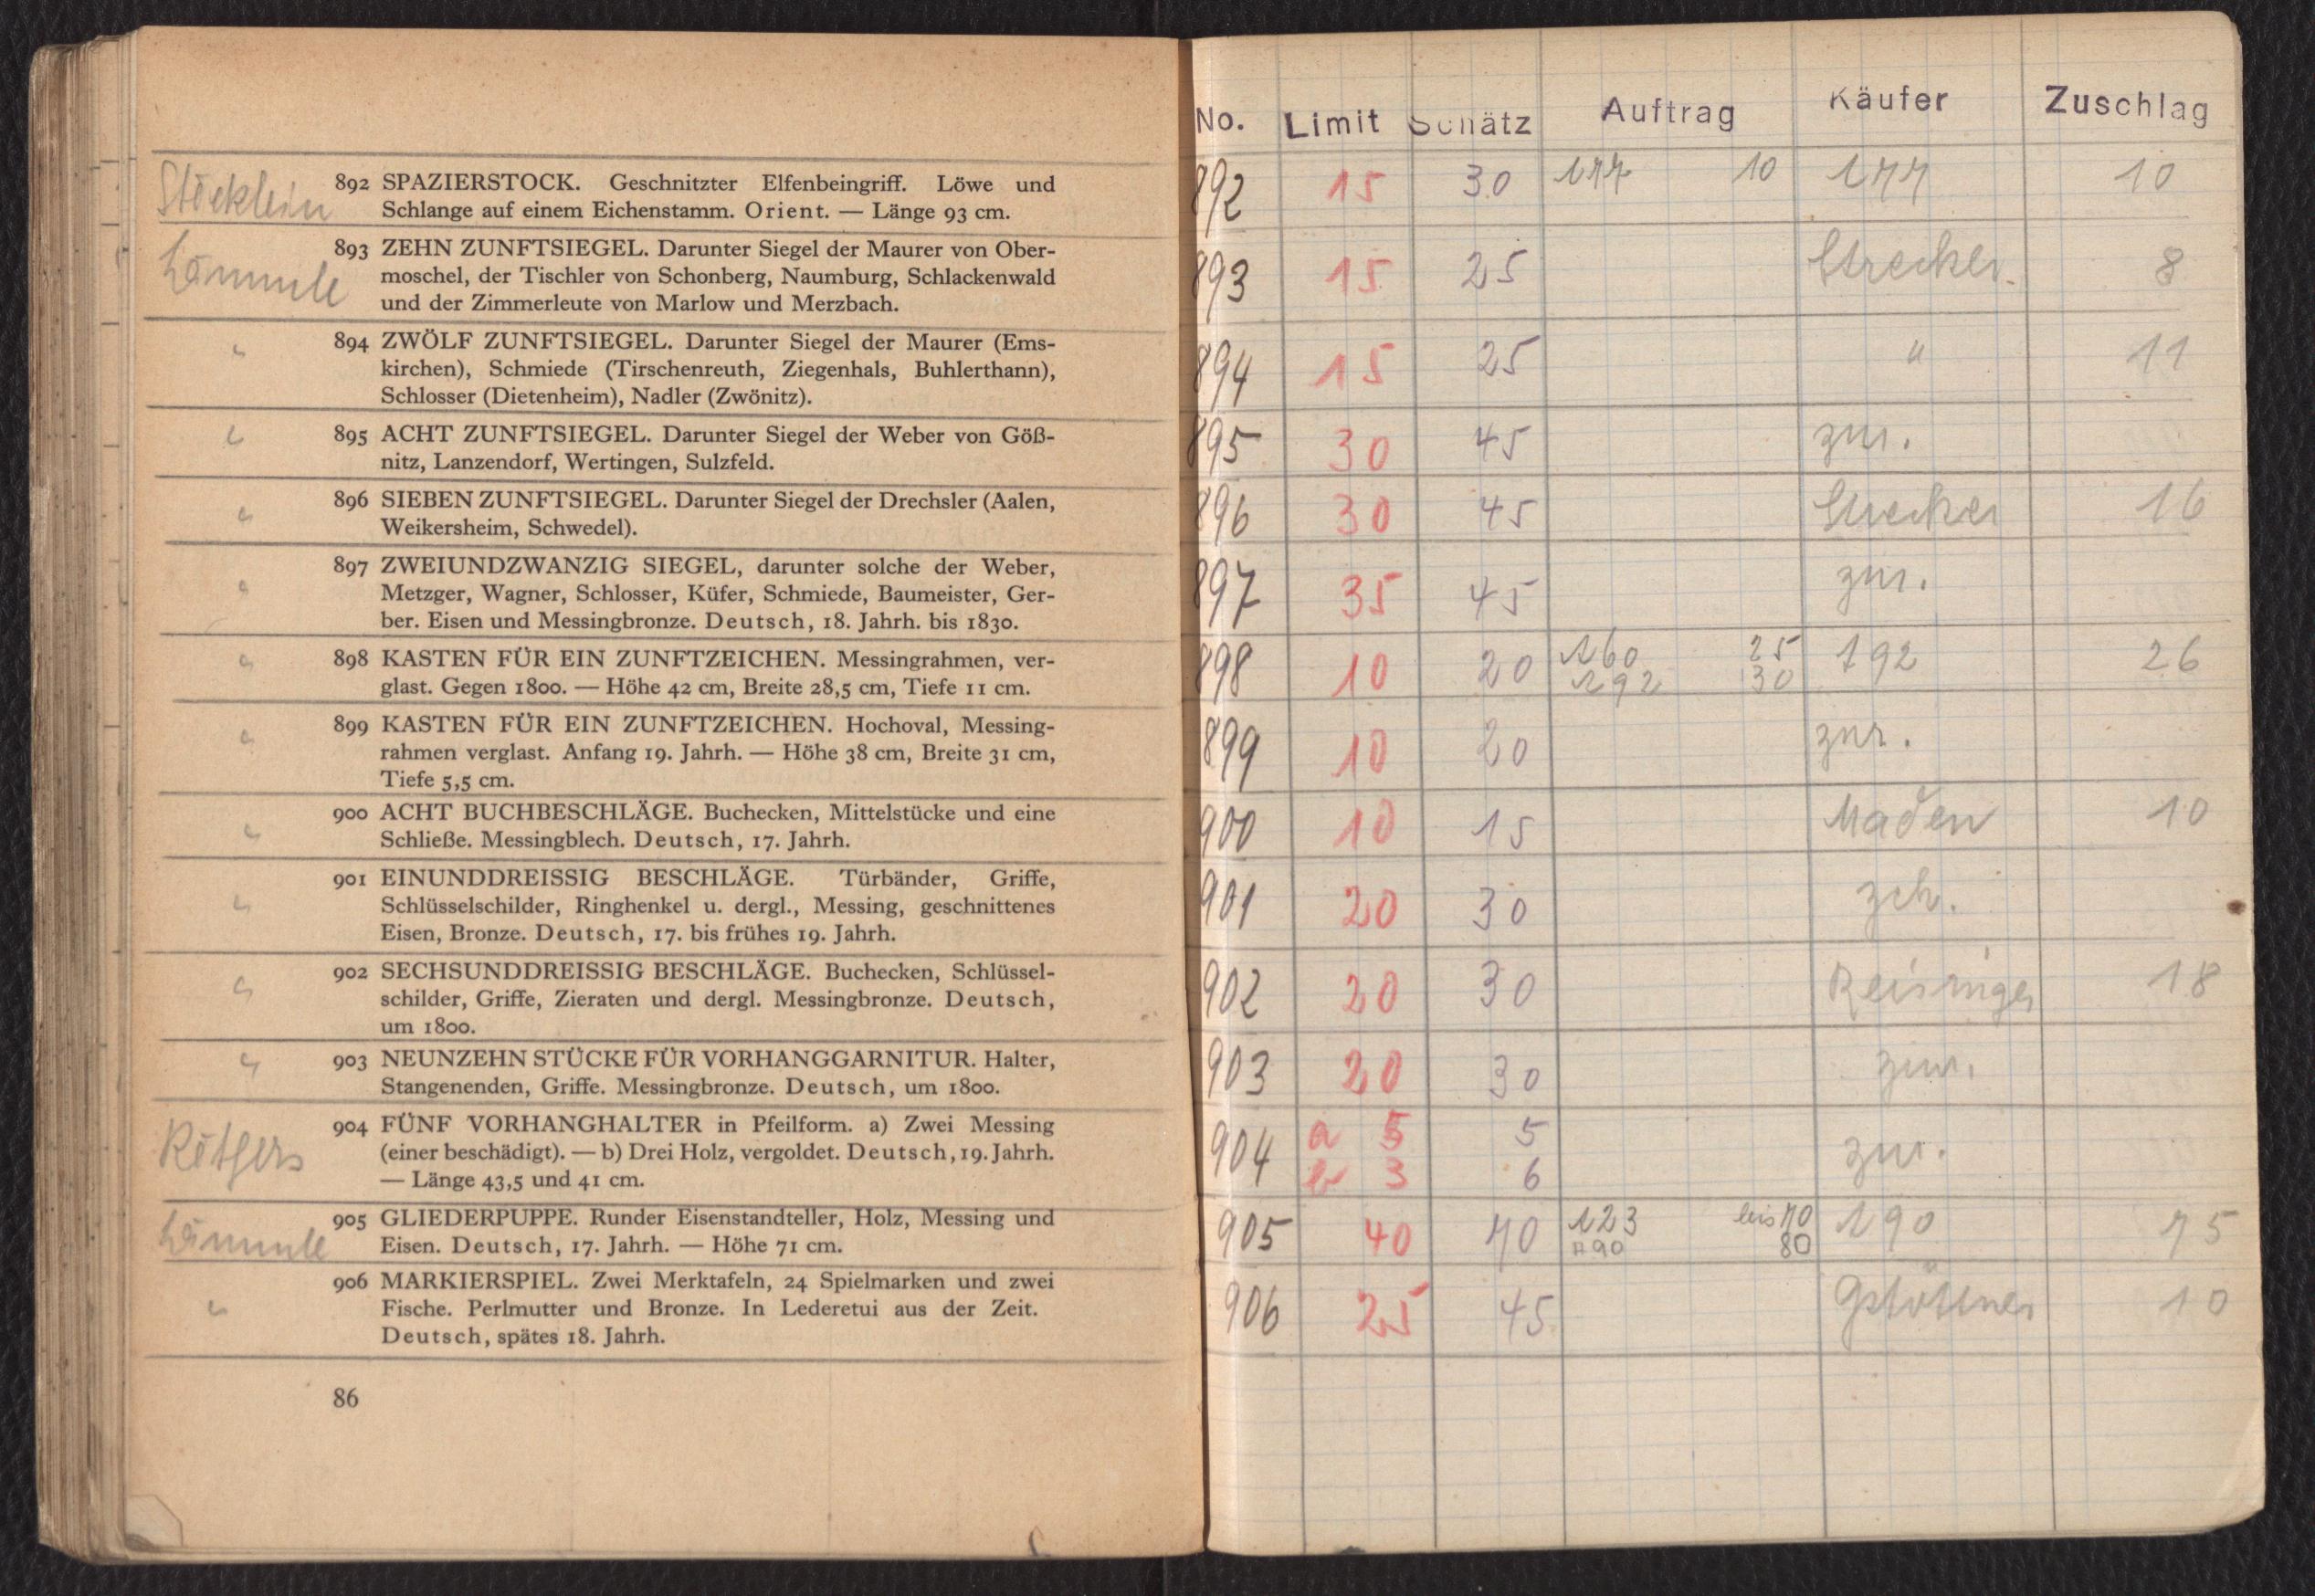 Stöcklein
892 SPAZIERSTOCK. Geschnitzter Elfenbeingriff. Löwe und
Schlange auf einem Eichenstamm. Orient. — Länge 93 cm.
Lämmle
893 ZEHN ZUNFTSIEGEL. Darunter Siegel der Maurer von Ober-
moschel, der Tischler von Schonberg, Naumburg, Schlackenwald
und der Zimmerleute von Marlow und Merzbach.
" 894 ZWÖLF ZUNFTSIEGEL. Darunter Siegel der Maurer (Ems-
kirchen), Schmiede (Tirschenreuth, Ziegenhals, Buhlerthann),
Schlosser (Dietenheim), Nadler (Zwönitz).
" 895 ACHT ZUNFTSIEGEL. Darunter Siegel der Weber von Göß-
nitz, Lanzendorf, Wertingen, Sulzfeld.
" 896 SIEBEN ZUNFTSIEGEL. Darunter Siegel der Drechsler (Aalen,
Weikersheim, Schwedel).
" 897 ZWEIUNDZWANZIG SIEGEL, darunter solche der Weber,
Metzger, Wagner, Schlosser, Küfer, Schmiede, Baumeister, Ger-
ber. Eisen und Messingbronze. Deutsch, 18. Jahrh. bis 1830.
" 898 KASTEN FÜR EIN ZUNFTZEICHEN. Messingrahmen, ver-
glast. Gegen 1800. — Höhe 42 cm, Breite 28,5 cm, Tiefe 11 cm.
" 899 KASTEN FÜR EIN ZUNFTZEICHEN. Hochoval, Messing-
rahmen verglast. Anfang 19. Jahrh. — Höhe 38 cm, Breite 31 cm,
Tiefe 5,5 cm.
" 900 ACHT BUCHBESCHLÄGE. Buchecken, Mittelstücke und eine
Schließe. Messingblech. Deutsch, 17. Jahrh.
" 901 EINUNDDREISSIG BESCHLÄGE. Türbänder, Griffe,
Schlüsselschilder, Ringhenkel u. dergl., Messing, geschnittenes
Eisen, Bronze. Deutsch, 17. bis frühes 19. Jahrh.
" 902 SECHSUNDDREISSIG BESCHLÄGE. Buchecken, Schlüssel-
schilder, Griffe, Zieraten und dergl. Messingbronze. Deutsch,
um 1800.
" 903 NEUNZEHN STÜCKE FÜR VORHANGGARNITUR. Halter,
Stangenenden, Griffe. Messingbronze. Deutsch, um 1800.
Rötgers
904 FÜNF VORHANGHALTER in Pfeilform. a) Zwei Messing
(einer beschädigt). — b) Drei Holz, vergoldet. Deutsch, 19. Jahrh.
— Länge 43,5 und 41 cm.
Lämmle
905 GLIEDERPUPPE. Runder Eisenstandteller, Holz, Messing und
Eisen. Deutsch, 17. Jahrh. — Höhe 71 cm.
" 906 MARKIERSPIEL. Zwei Merktafeln, 24 Spielmarken und zwei
Fische. Perlmutter und Bronze. In Lederetui aus der Zeit.
Deutsch, spätes 18. Jahrh.
86
No. Limit Schätz Auftrag Käufer Zuschlag
892 15 30 177 10 177 10
893 15 25 Strecker 8
894 15 25 " 11
895 30 45 zur.
896 30 45 Strecker 16
897 35 45 zur.
898 10 20 160 25 192 26
192 30
899 10 20 zur.
900 10 15 Maden 10
901 20 30
902 20 30 Reisinger 18
903 20 30 zur.
904 a 5 5 zur.
b 3 6
905 40 70 123 bis 70 190 75
190 80
906 25 45 Gstöttner 10